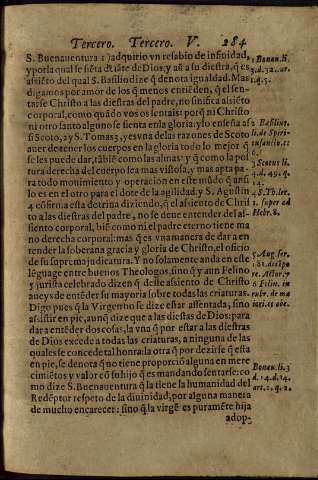 Tercero. Tercero. V. 284
S. Buenauentura 1 adquirio vn resabio de infinidad,
y por la qual se siēta dełāte de Dios, y aū a su diestra, q̄ es
assiēto del qual S. Basilio dize q̄ denota igualdad. Mas
digamos por amor de los q̄ menos entiēden, que el sen-
tarse Christo a las diestras del padre, no significa assiēto
corporal, como quādo vos os sentais: por q̄ ni Christo
ni otro santo alguno se sienta en la gloria: y lo enseña as
si Scoto, 2 y S. Tomas 3, y es vna de las razones de Scoto
auer de tener los cuerpos en la gloria todo lo mejor q̄
se les puede dar, tābiē como las almas: y q̄ como la pos
tura derecha del cuerpo sea mas vistosa, y mas apta pa-
ra todo mouimiento y operacion en este mūdo q̄ aqui
lo es en el otro para el dote de la agilidad. y S. Agustin
4 cōfirma esta dotrina diziendo, q̄ el assiento de Christ
to a las diestras del padre, no se deue entender del as-
siento corporal, biē como ni el padre eterno tiene ma
no derecha corporal: mas q̄ es vna manera de dar a en-
tender la soberana gracia y gloria de Christo, el oficio
de su suprema judicatura. Y no solamente anda en este
lēguage entre buenos Theologos, sino q̄ y aun Felino
5 jurista celebrado dizen q̄ desde assiento de Christo
aueys de entēder su mayoria sobre todas las criaturas.
Digo pues q̄ la Virgen no se dize estar assentada, sino
assistir en pie, aunq̄ dize que a las diestras de Dios: para
dar a entēder dos cosas, la vna q̄ por estar a las diestras
de Dios excede a todas las criaturas, a ninguna de las
quales se concede tal honra: la otra q̄ por dezirse q̄ esta
en pie, se denota q̄ no tiene proporciō alguna en mere
cimiētos y valor cō su hijo q̄ es mandando sentarse: co
mo dize S. Buenauentura q̄ la tiene la humanidad del
Redēptor respeto de la diuinidad, por alguna manera
de mucho encarecer: sino q̄ la virgē es puramēte hija
adop-
1 Bonan. li.
3. d. 32. ar.
1. q. 5.
2 Basilius
li. de Spiri-
tu sancto. c.
6.
3 Scotus li.
4. d. 49. q.
14.
4 S. Th. lec.
1. super ad
Hebr. 8.
5 Aug. ser.
181. de tēpo
re. Actor. 7
6 Felin. in
rubr. de ma
iori. et obe.
Bonan. li. 3
d. 14. d. 14.
art. 2. q. 2.